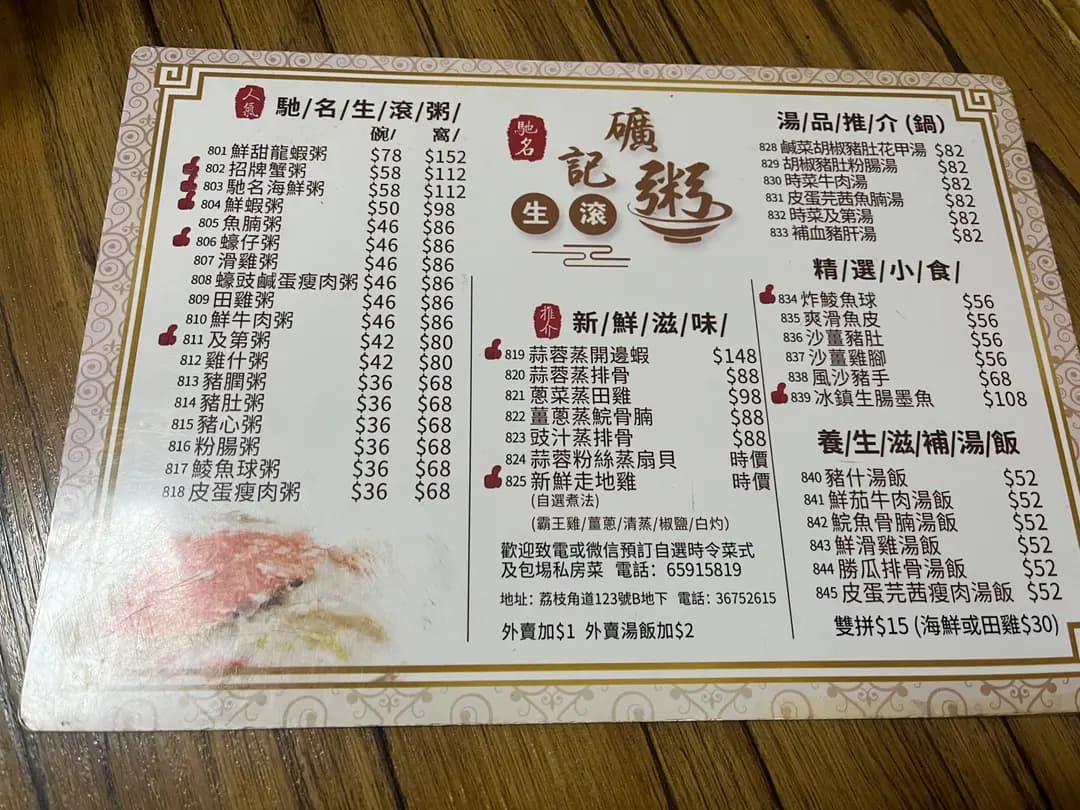 人氣
馳/名/生/滾/粥/
碗/ 窩/
801 鮮甜龍蝦粥 $78 $152
802 招牌蟹粥 $58 $112
803 馳名海鮮粥 $58 $112
804 鮮蝦粥 $50 $98
805 魚腩粥 $46 $86
806 蠔仔粥 $46 $86
807 滑雞粥 $46 $86
808 蠔豉鹹蛋瘦肉粥 $46 $86
809 田雞粥 $46 $86
810 鮮牛肉粥 $46 $86
811 及第粥 $42 $80
812 雞什粥 $42 $80
813 豬膶粥 $36 $68
814 豬肚粥 $36 $68
815 豬心粥 $36 $68
816 粉腸粥 $36 $68
817 鯪魚球粥 $36 $68
818 皮蛋瘦肉粥 $36 $68
馳名
礦記
生滾粥
推介
新/鮮/滋/味/
819 蒜蓉蒸開邊蝦 $148
820 蒜蓉蒸排骨 $88
821 蔥菜蒸田雞 $98
822 薑蔥蒸鯇骨腩 $88
823 豉汁蒸排骨 $88
824 蒜蓉粉絲蒸扇貝 時價
825 新鮮走地雞 時價
(自選煮法)
(霸王雞/薑蔥/清蒸/椒鹽/白灼)
歡迎致電或微信預訂自選時令菜式
及包場私房菜 電話：65915819
地址：荔枝角道123號B地下 電話：36752615
外賣加$1 外賣湯飯加$2
湯/品/推/介 (鍋)
828 鹹菜胡椒豬肚花甲湯 $82
829 胡椒豬肚粉腸湯 $82
830 時菜牛肉湯 $82
831 皮蛋芫茜魚腩湯 $82
832 時菜及第湯 $82
833 補血豬肝湯 $82
精/選/小/食/
834 炸鯪魚球 $56
835 爽滑魚皮 $56
836 沙薑豬肚 $56
837 沙薑雞腳 $56
838 風沙豬手 $68
839 冰鎮生腸墨魚 $108
養/生/滋/補/湯/飯
840 豬什湯飯 $52
841 鮮茄牛肉湯飯 $52
842 鯇魚骨腩湯飯 $52
843 鮮滑雞湯飯 $52
844 勝瓜排骨湯飯 $52
845 皮蛋芫茜瘦肉湯飯 $52
雙拼$15 (海鮮或田雞$30)